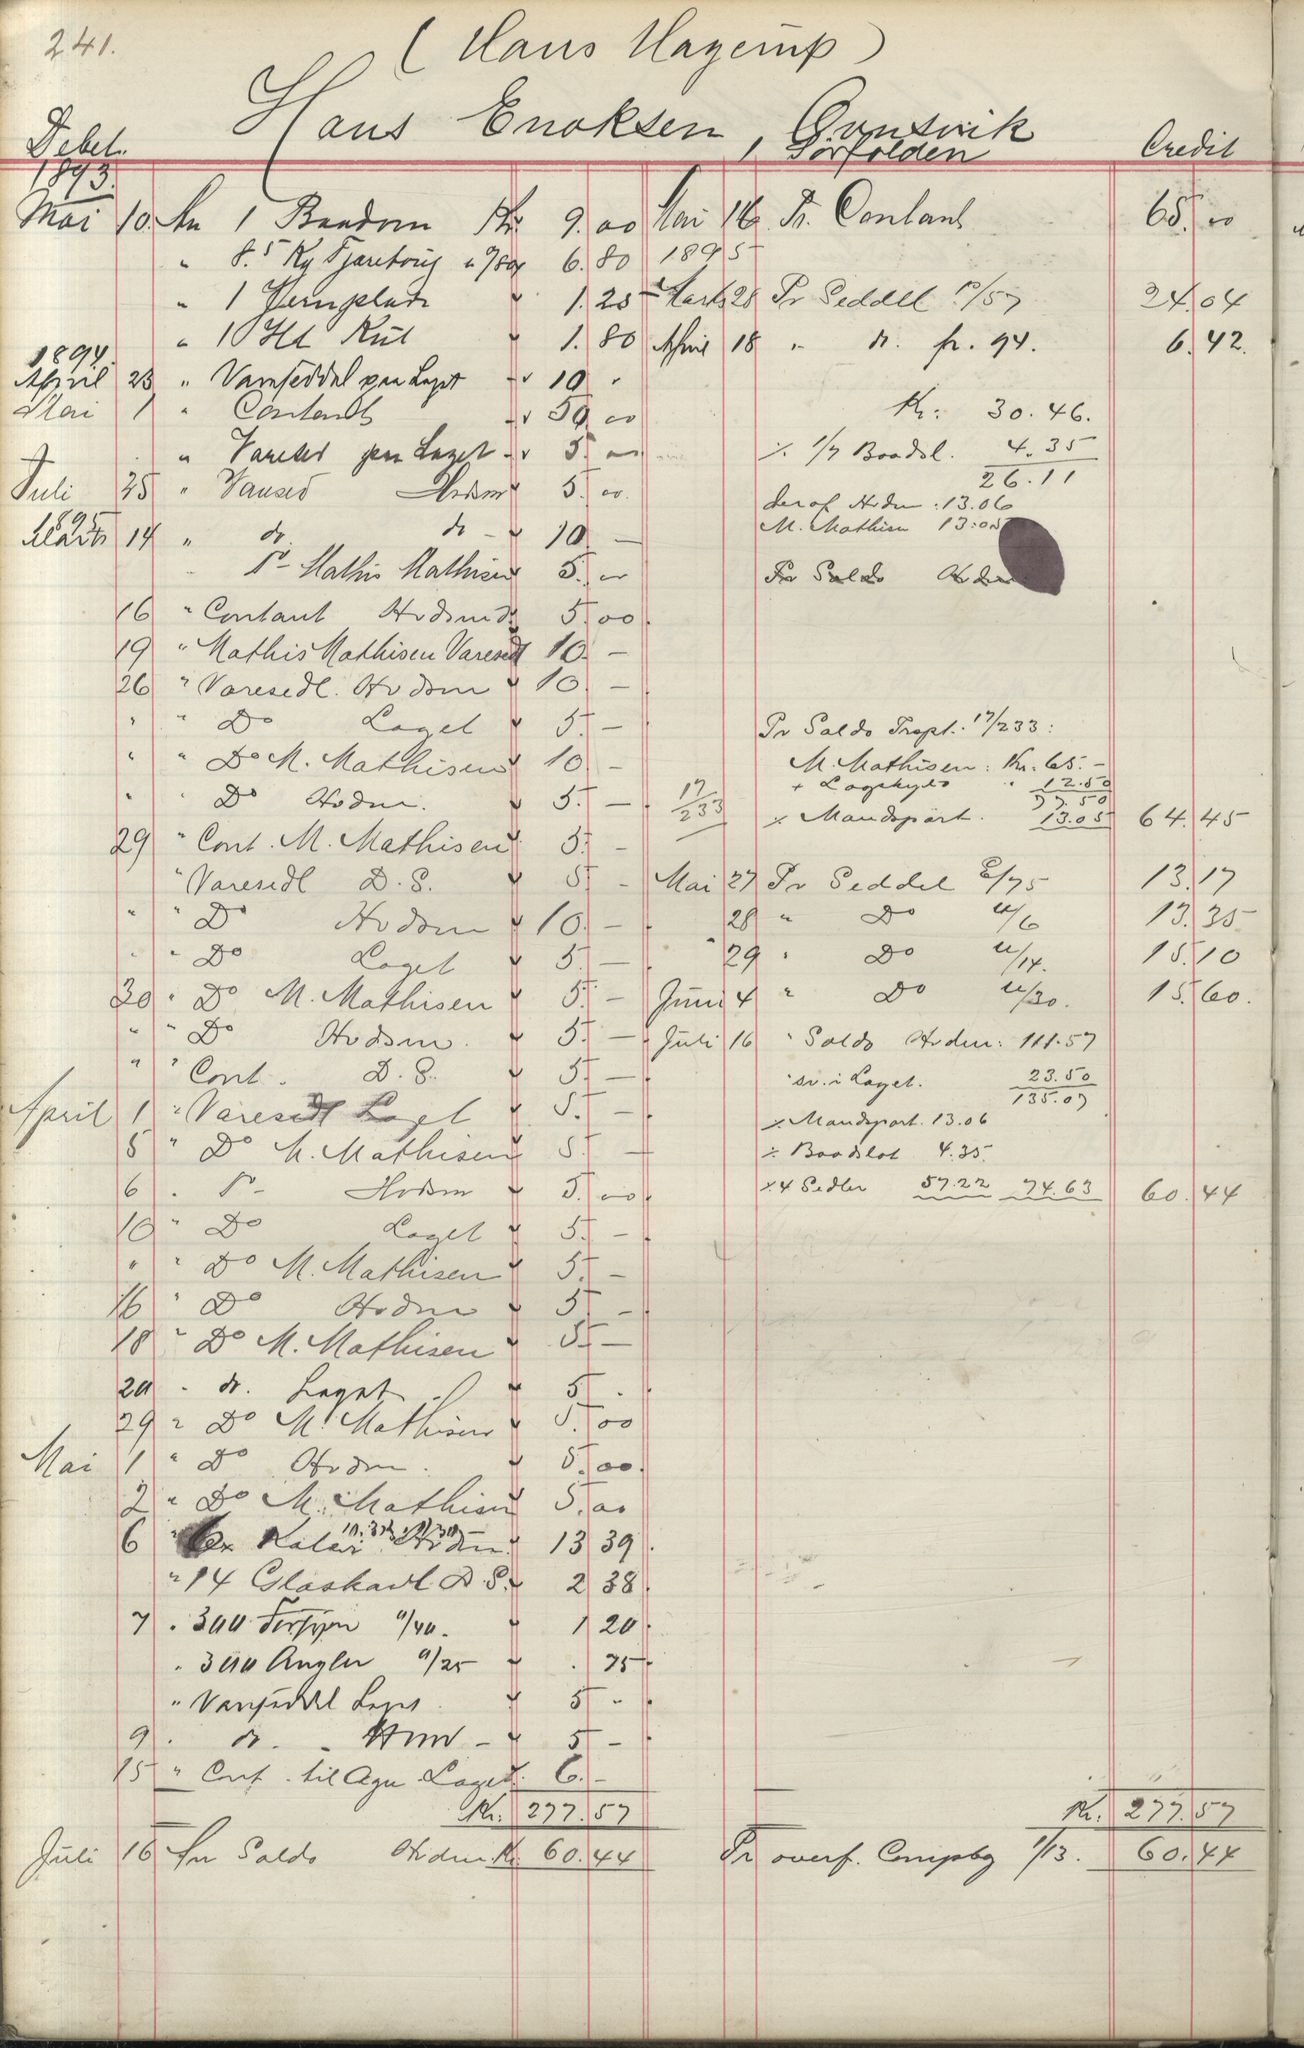 241.
(Hans Hagerup)
Hans Enoksen, Qvnsvik
Sörfolden
Debet. Credit
1893.
Mai 10. An 1 Kr. 9.00
" 8.5 Kg " 6.80
" 1 Jernplade " 1.25
" 1 Hl Kul " 1.80
1894.
April 23 " Vareseddel paa Laget " 10 "
Mai 1 " Contant " 50.00
" Varesed paa Laget " 5.00
Juli 25 " Varesed Hvdsm " 5.00
1895
Marts 14 " do do " 10 —
" Do Mathis Mathisen " 5.00
16 " Contant Hvdsmd. 5.00
19 " Mathis Mathisen Varesedl 10. —
26 " Varesedl. Hvdsm " 10. —
" " Do Laget " 5. —
" " Do M. Mathisen " 10. —
" " Do Hvdm. " 5. —
29 " Cont. M. Mathisen " 5. —
" Varesedl D.S. " 5. —
" " Do Hvdsm " 10. —
" " Do Laget " 5. —
30 " Do M. Mathisen " 5. —
" " Do Hvdsm. " 5. —
" " Cont. D.S. " 5. —
April 1 " Varesedl Laget " 5. —
5 " Do M. Mathisen " 5. —
6 " Do Hvdsm " 5.00
10 " Do Laget " 5. —
" " Do M. Mathisen " 5. —
16 " Do Hvdm " 5. —
18 " Do M. Mathisen " 5. —
20 " do. Laget " 5 "
29 " Do M. Mathisen " 5.00
Mai 1 " Do Hvdm. " 5.00
2 " Do M. Mathisen " 5.00
6 " Hvdm. " 13 39
" 14 Glaskavl D.S. " 2 38
7 " 300 Forsyn 0/40. " 1 20
" 300 Angler 0/25 " . 75
" Vareseddel Laget. " 5 "
9 " do. " 5 —
15 " Cont. til Agn Laget. " 6. —
Kr. 277.57
Juli 16 An Saldo Hvdm. Kr. 60.44
Mai 16 Pr. Contant 65.00
1895
Marts 28 Pr Seddel 10/57 24.04
April 18 " do. fr. 94. 6.42
Kr. 30.46.
% 1/7 Baadsl. 4.35
26.11
deraf Hvdm: 13.06
M. Mathisen 13.05
Pr Saldo Hvdm
Pr Saldo Trspt. 17/233:
M. Mathisen: Kr. 65. —
+ Lagskyld " 12.50
77.50
17/233 % Mandspart. 13.05 64.45
Mai 27 Pr Seddel E/75 13.17
28 " Do u/6 13.35
" 29 " Do u/14. 15.10
Juni 4 " Do u/30. 15.60.
Juli 16 " Saldo Hvdm: 111.57
" sv. i Laget. 23.50
135.07
% Mandspart. 13.06
% Baadslot 4.35
% 4 Sedler 57.22 74.63 60.44
Kr. 277.57
Pr overf. Compbg 1/13. 60.44